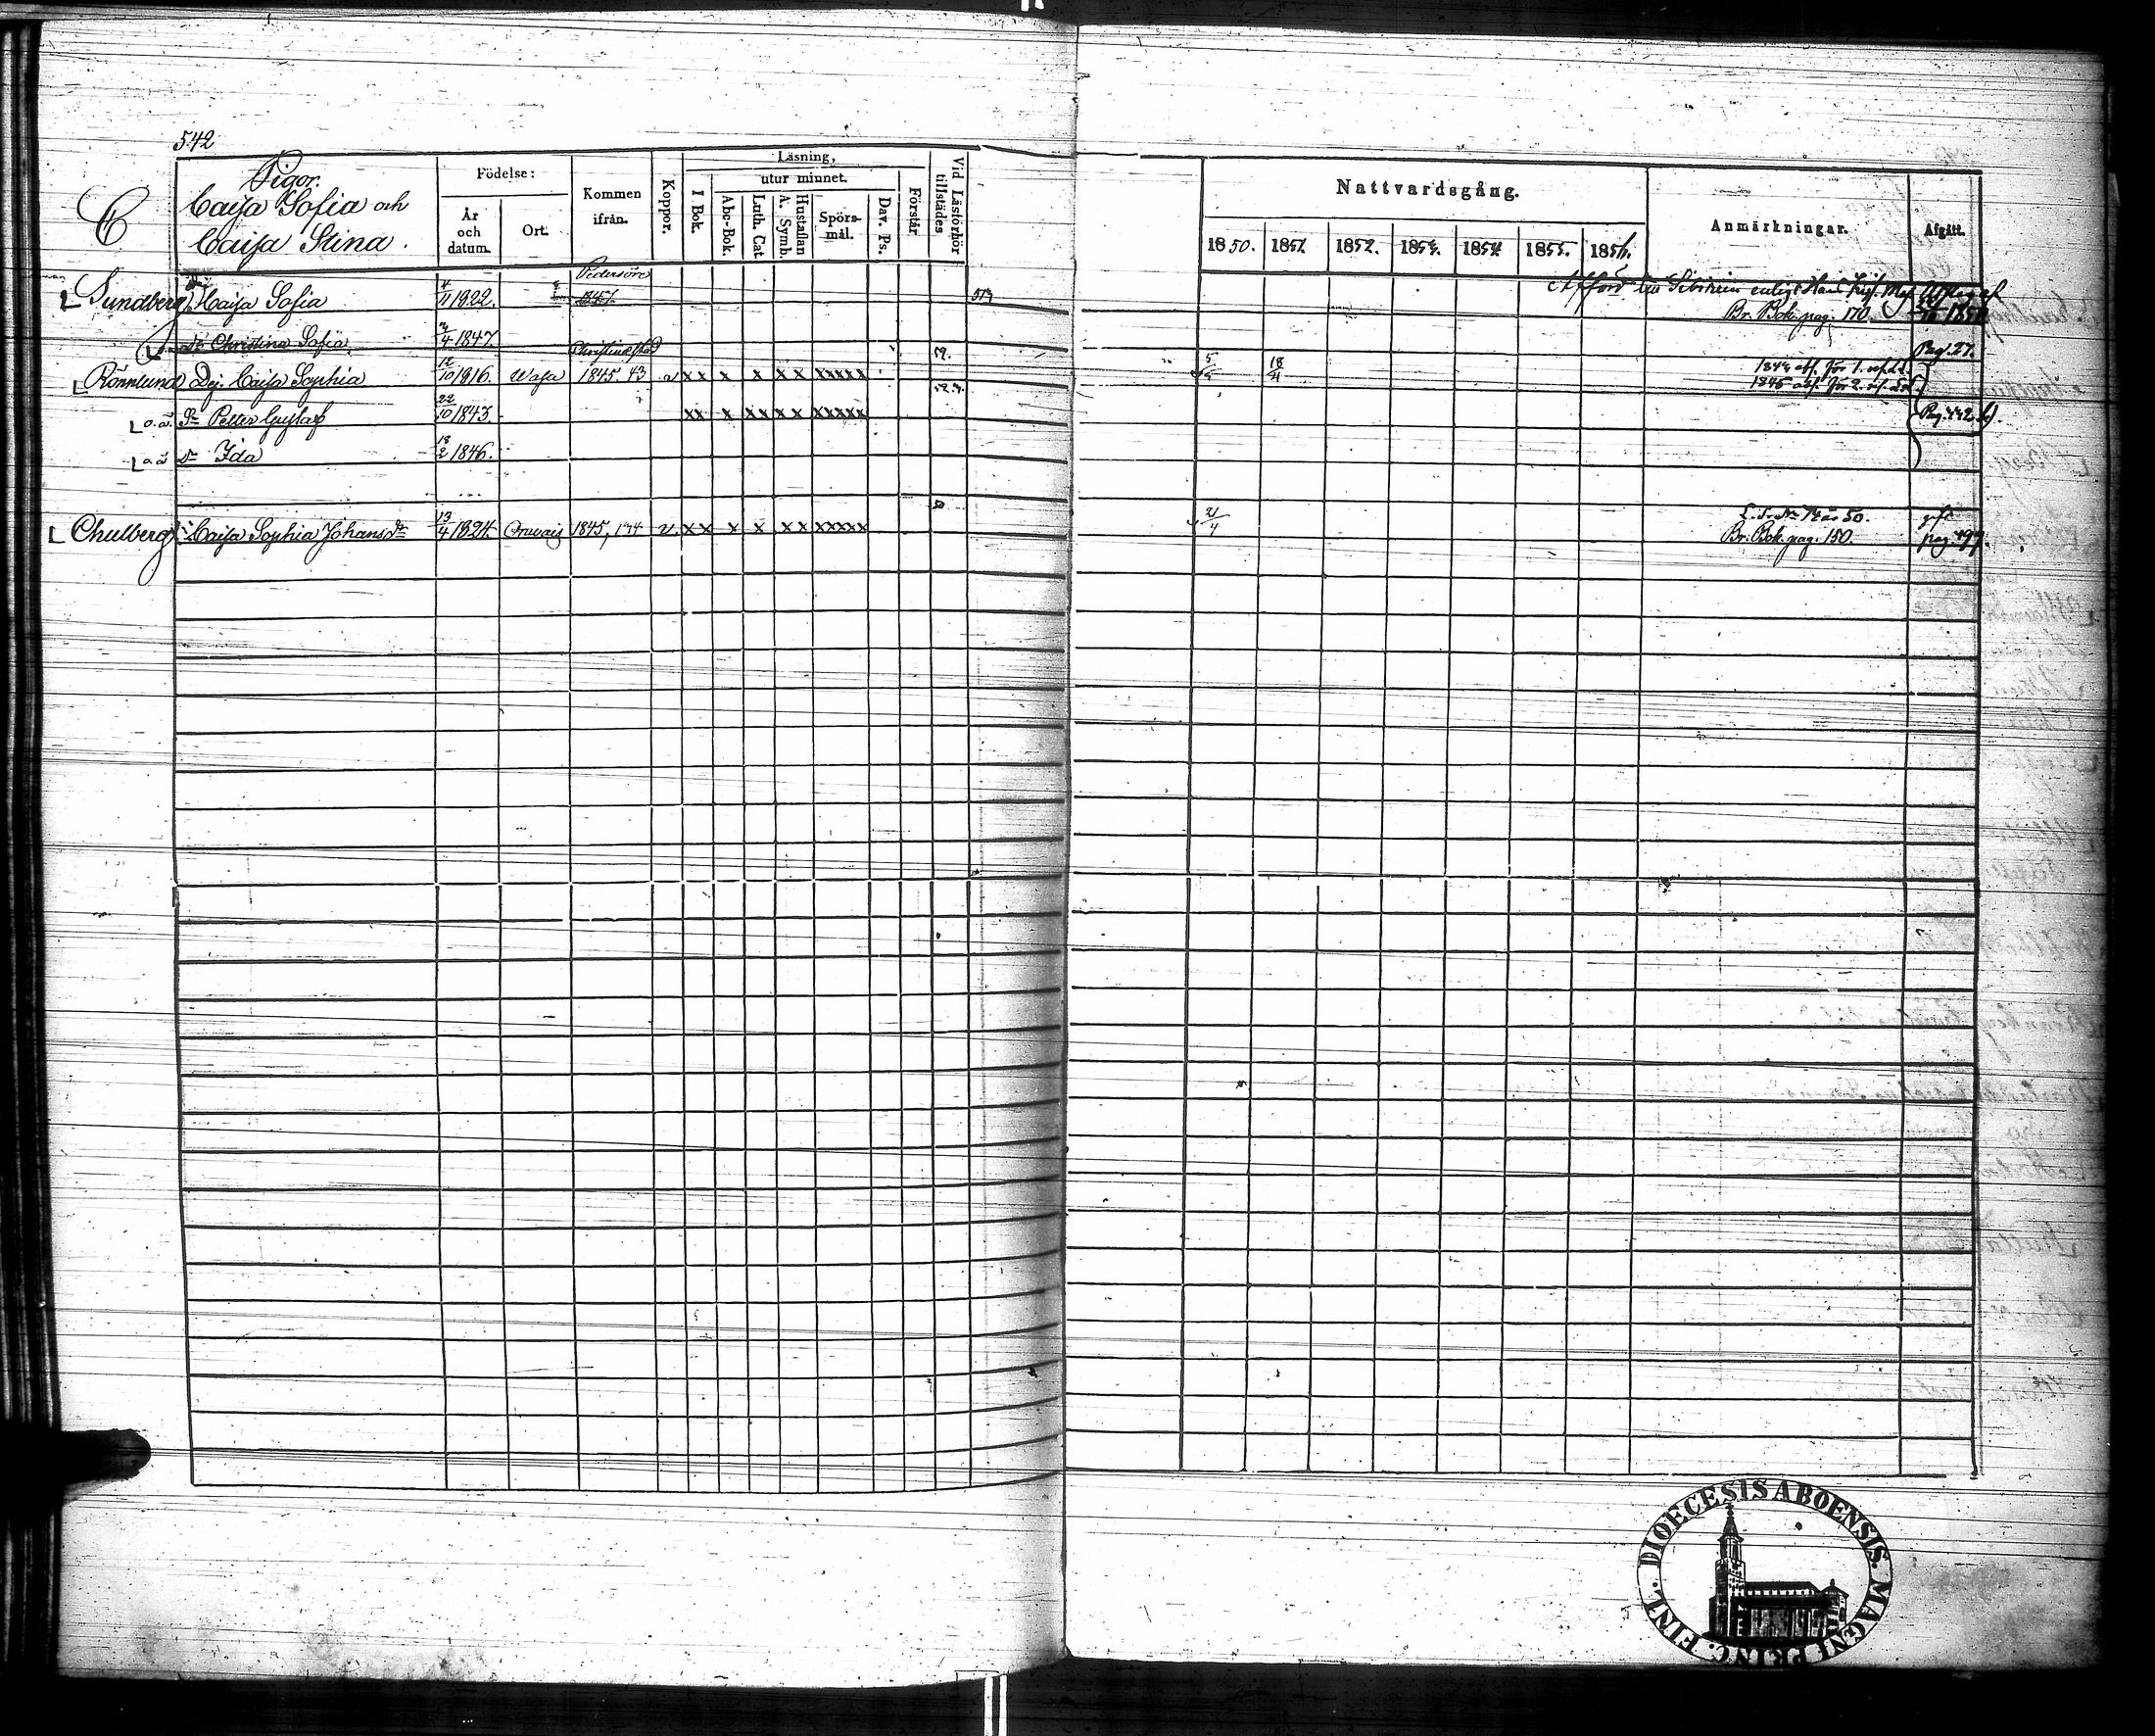 542
C
Pigor.
Caisa Sofia och
Caisa Stina.
Födelse:
År
och
datum.
Ort.
Kommen
ifrån.
Koppor.
Läsning,
I Bok.
utur minnet.
Abc-Bok.
Luth. Cat
Hustaflan
A. Symb.
Spörs-
mål.
Dav. Ps.
Förstår
Vid Läsförhör
tillstädes
Nattvardsgång.
1850. 1851. 1852. 1853. 1854 1855. 1856.
Anmärkningar.
Afgått.
Pedersöre
Sundberg, Caisa Sofia 4/11 1822. 1847.
enligt
Br. Bok. pag. 170.
Dr Christina Sofia 4/4 1847.
Pag. 27.
Christinestad
Rönnlund Dej. Caisa Sophia 12/10 1816. Wasa 1845. 43 v xx x x xx xxxxx 5/5 18/4 1844 abs. för 1. 
1845 abs. för 2.
o.ä. Sn Petter Gustaf 22/10 1843. xx x xx xx xxxxx Pag. 442.
o.ä Dr Ida 18/2 1846.
Chulberg Caisa Sophia Johansdr 13/4 1824. Orevais 1845, 144 v. xx x x xx xxxxx 21/4
50.
Br. Bok. pag. 150.
pag. 497.
DIOECESIS ABOENSIS. MAGNI PRINC. FINL.